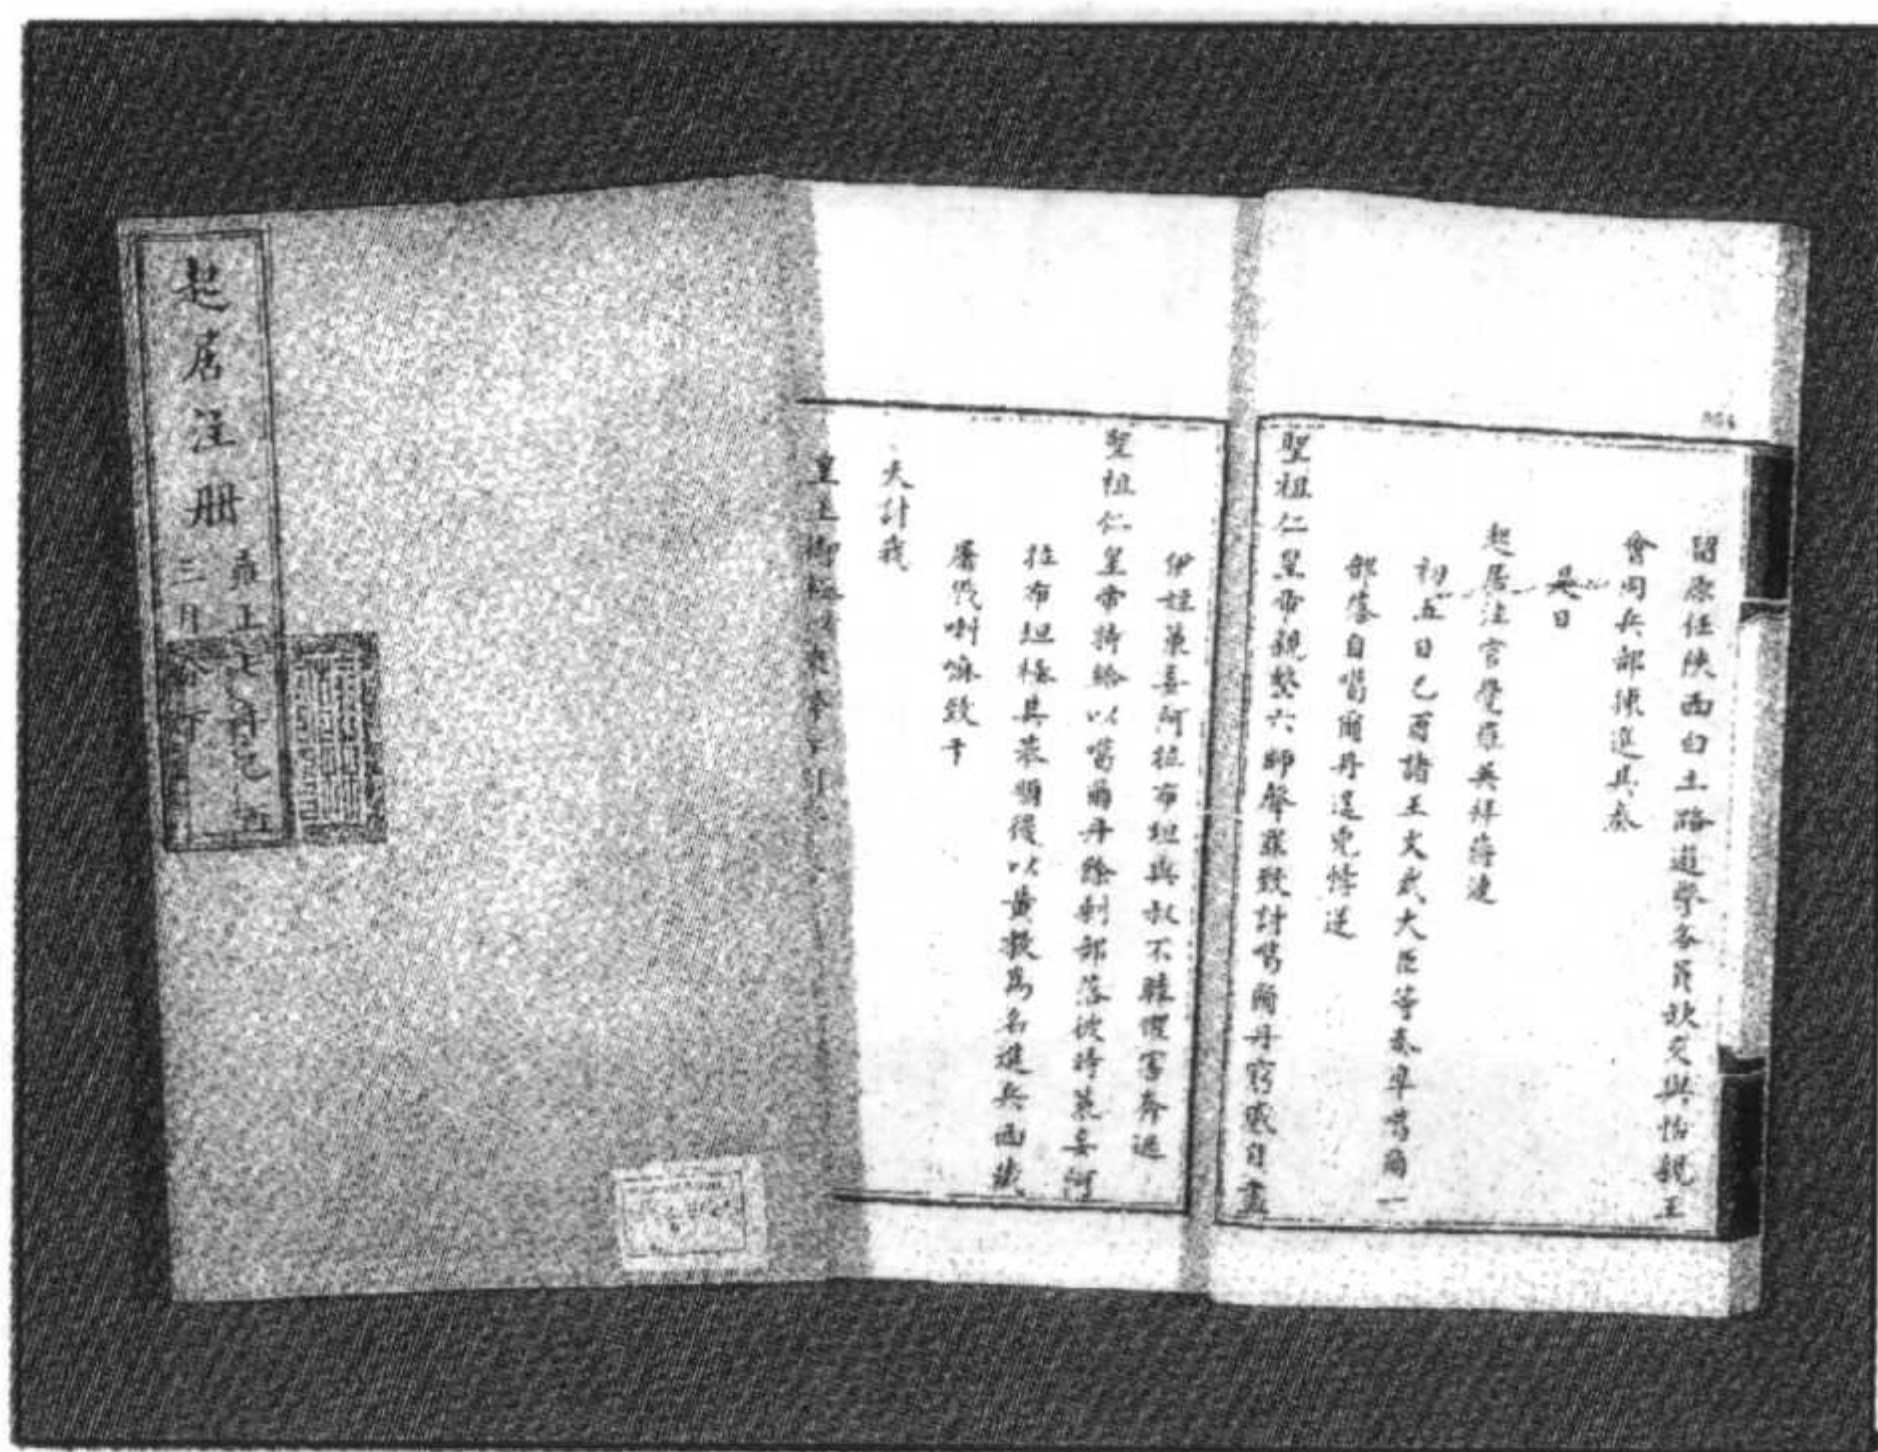 留原任陝西白土路遊擊各員缺交與怡親王
會同兵部揀選具奏
是日
起居注官覺羅吳拜蔣漣
初五日乙酉諸王文武大臣等奏準噶爾一
部落自噶爾丹逞兇悖逆
聖祖仁皇帝親整六師聲罪致討噶爾丹窮蹙自盡
伊姪策妄阿拉布坦與叔不睦懼害奔逃
聖祖仁皇帝將給以噶爾丹餘剩部落彼時策妄阿
拉布坦極其恭順後以黃教為名進兵西藏
屠戮喇嘛致干
天討我
皇上御極
起居注册
雍正七年己酉
三月分下